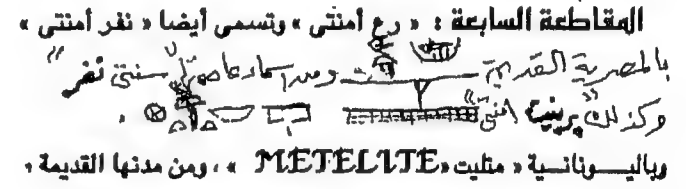 المقاطعة السابعة : « رع أمنتى » وتسمى أيضا « نفر أمنتى »
بالمصرية القديمة ومن أسماء عاصمتها "سنتى نفر"
وكذلك "برنبت امنتى" .
وباليـونانـية « متليت «METELITE » ، ومن مدنها القديمة ،